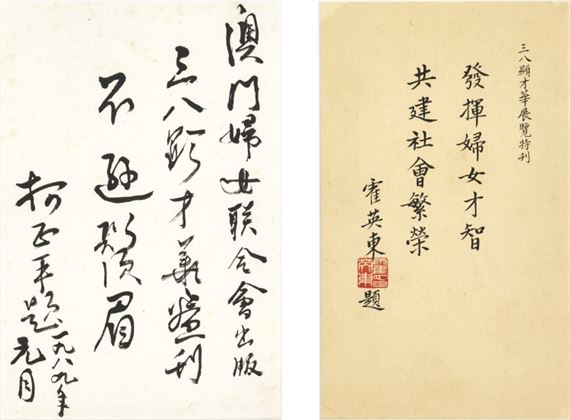 澳門婦女联合會出版
三八顯才華刊
不遜鬚眉
柯正平題
一九八九年
元月
三八顯才華展覽特刊
發揮婦女才智
共建社會繁榮
霍英東題